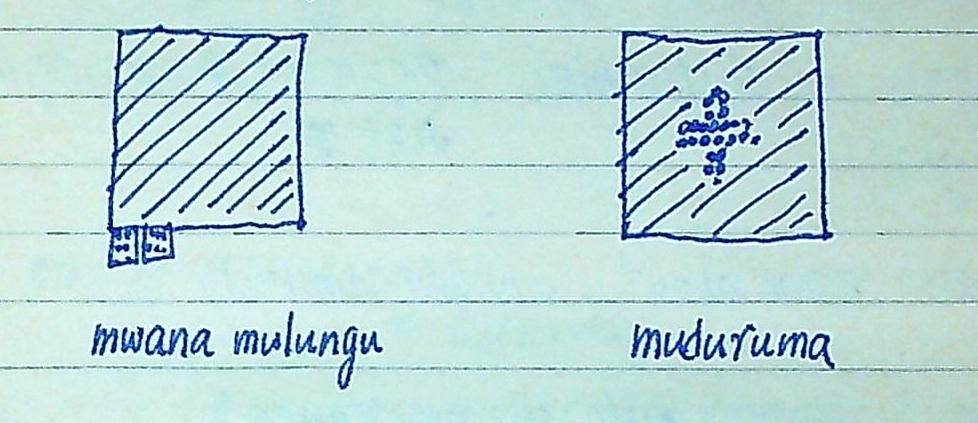 mwana mulungu
muduruma